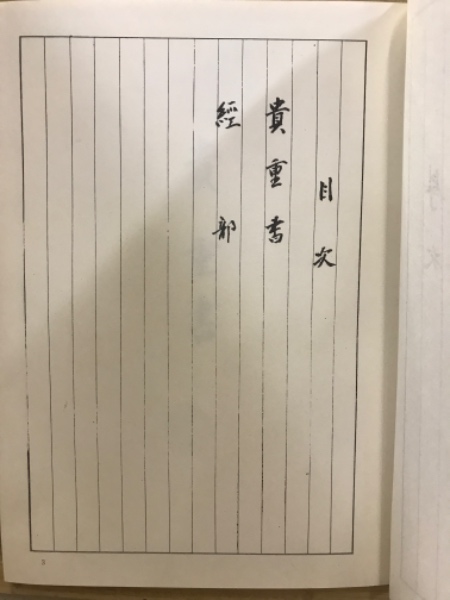 目次
貴重書
經部